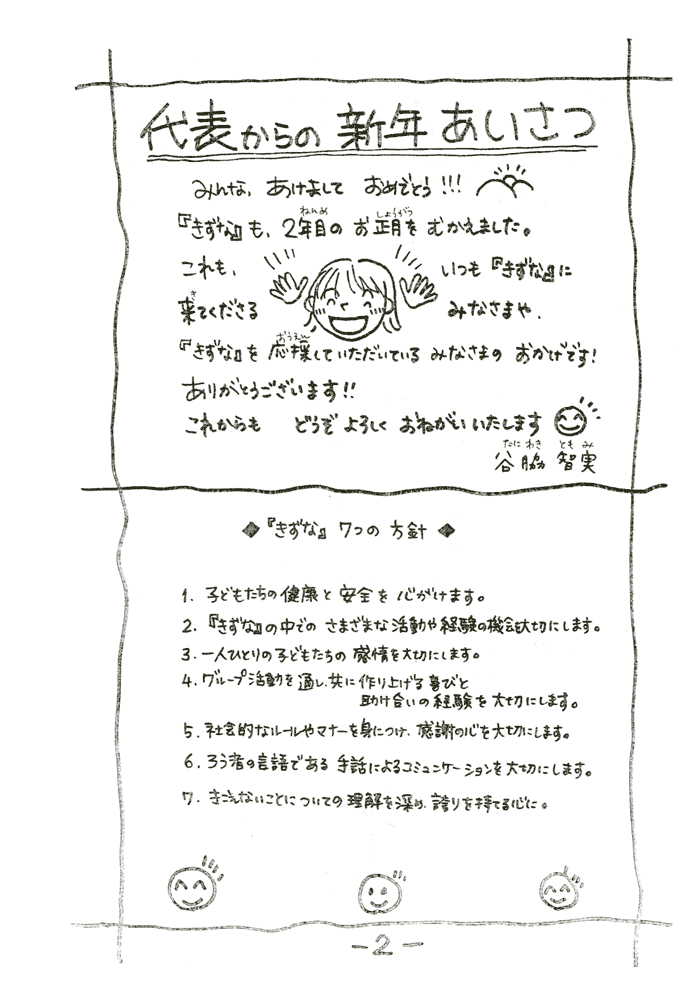 代表からの 新年 あいさつ
みんな、あけまして おめでとう!!!
『きずな』も、2年目の お正月を むかえました。
これも、 いつも『きずな』に
来てくださる みなさまや、
『きずな』を 応援していただいている みなさまの おかげです!
ありがとうございます!!
これからも どうぞ よろしく おねがいいたします
谷脇 智実
◆『きずな』 7つの 方針 ◆
1. 子どもたちの 健康と 安全を 心がけます。
2. 『きずな』の中での さまざまな活動や経験の機会を大切にします。
3. 一人ひとりの子どもたちの 感情を大切にします。
4. グループ活動を通し、共に作り上げる喜びと
助け合いの経験を大切にします。
5. 社会的なルールやマナーを身につけ、感謝の心を大切にします。
6. ろう者の言語である 手話によるコミュニケーションを大切にします。
7. きこえないことについての理解を深め、誇りを持てる心に。
-2-